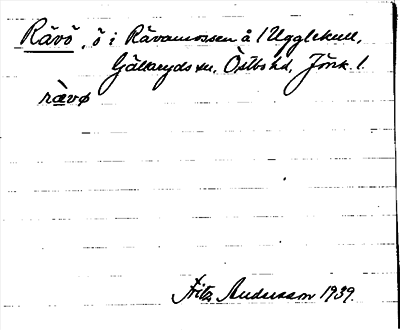 Rävö, ö i Rävamossen å 1 Ugglekull,
Gällaryds sn, Östbo hd, Jönk. l.
rævø
Frits Andersson 1939.